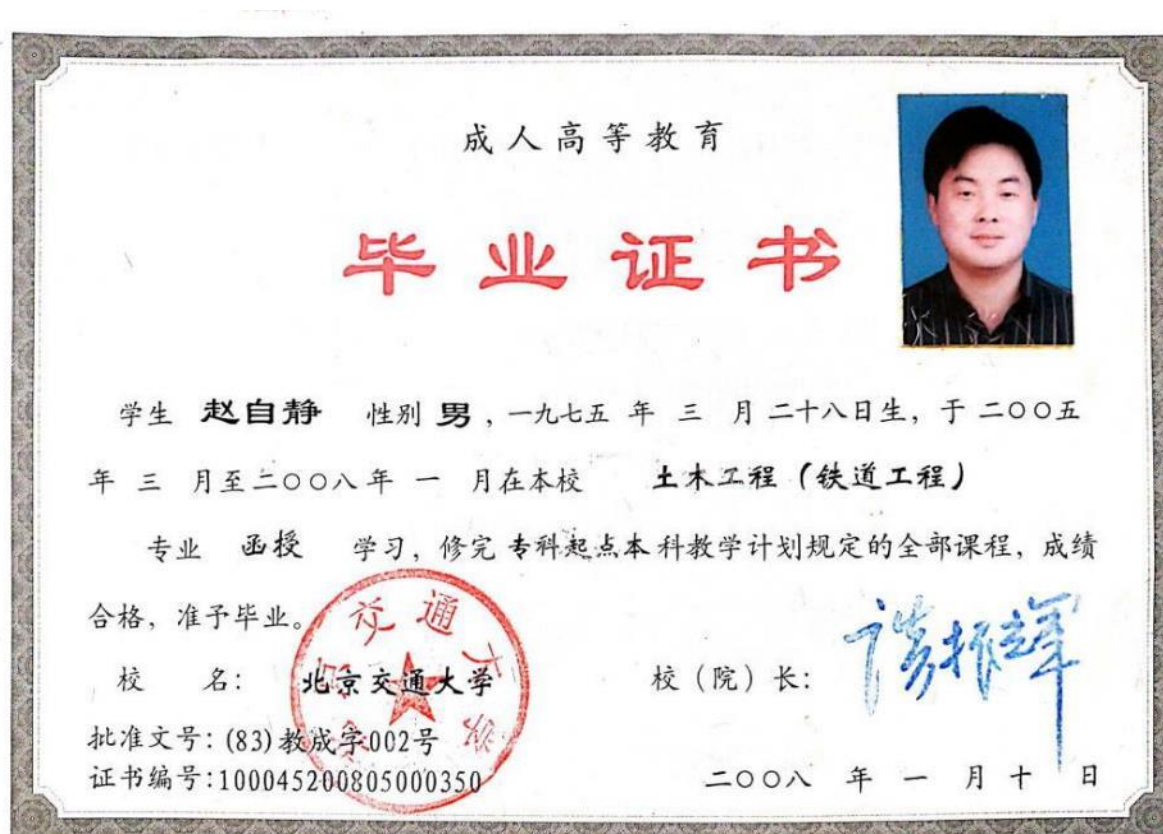 成人高等教育
毕业证书
学生 赵自静 性别 男,一九七五 年 三 月 二十八日生,于 二○○五
年 三 月至二○○八年 一 月在本校 土木工程(铁道工程)
专业 函授 学习,修完 专科起点本 科教学计划规定的全部课程,成绩
合格,准予毕业。
校 名: 北京交通大学 校(院)长: 谈振辉
批准文号:(83)教成字002号
证书编号:100045200805000350 二○○八 年 一 月 十 日